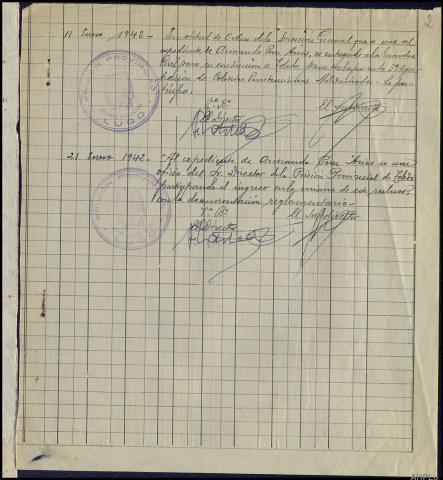 2
11 Enero 1942 - En virtud de Orden de la Dirección General que se une al
expediente de Armando Pérez Arias, es entregado a la Guardia
Civil para su conducción a Toledo para trabajar en la 5ª Agru-
pación de Colonias Penitenciarias Militarizadas.
Vº Bº
El Director
El Subdirector
PRISION PROVINCIAL
LUGO
21 Enero 1942. - Al expediente de Armando Pérez Arias se une
oficio del Sr. Director de la Prisión Provincial de Toledo
participando el ingreso en la misma de este recluso,
con la documentación reglamentaria -
Vº Bº
El Director
El Subdirector
LUGO